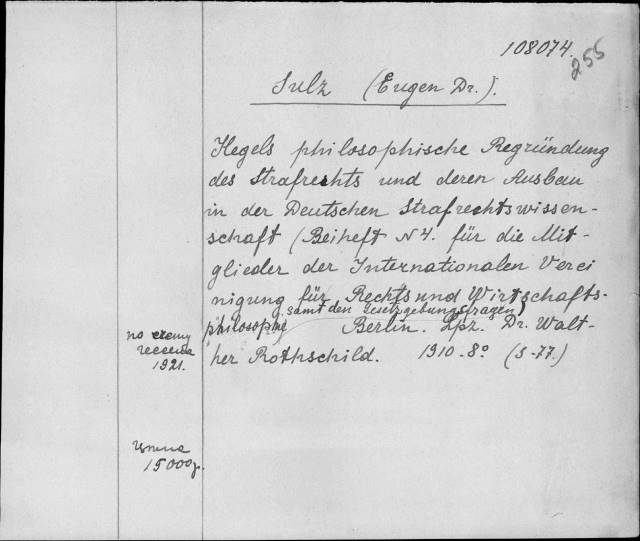 108074.
255
Sulz (Eugen Dr.).
Hegels philosophische Begründung
des Strafrechts und deren Ausbau
in der Deutschen Strafrechtswissen-
schaft (Beiheft N 4. für die Mit-
glieder der Internationalen Verei
nigung für Rechts und Wirtschafts-
samt den Gesetzgebungsfragen)
philosophie Berlin. Lpz. Dr. Walt-
her Rothschild. 1910 - 8° (S - 77.)
по счету
1921.
15000р.